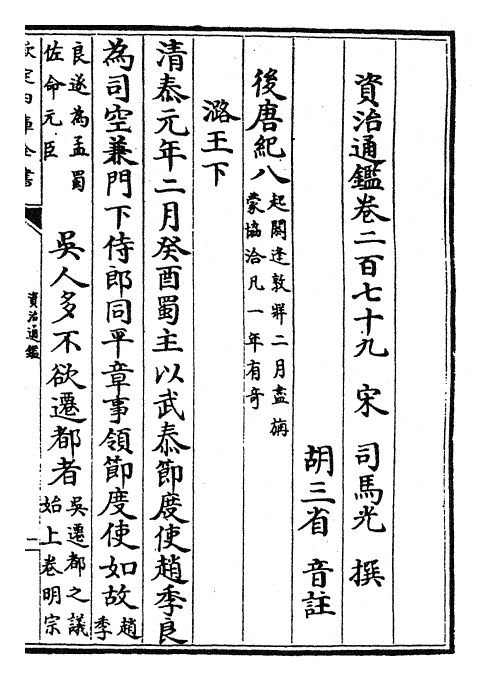 資治通鑑卷二百七十九 宋 司馬光 撰
胡三省 音註
後唐紀八 起閼逢敦牂二月盡旃
蒙協洽凡一年有奇
潞王下
清泰元年二月癸酉蜀主以武泰節度使趙季良
為司空兼門下侍郎同平章事領節度使如故 趙
季
良遂為孟蜀
佐命元臣
吳人多不欲遷都者 吳遷都之議
始上卷明宗
欽定四庫全書
資治通鑑
一